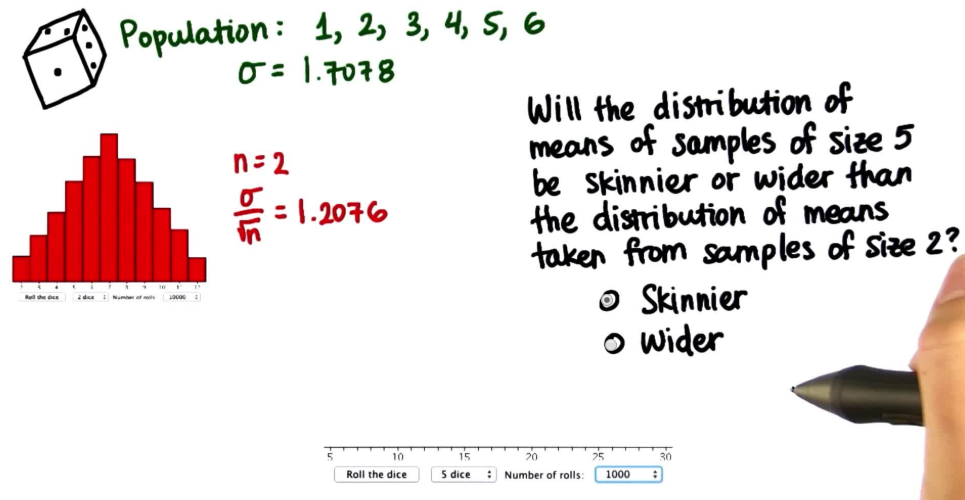 Population: 1, 2, 3, 4, 5, 6
σ = 1.7078
n = 2
σ/√n = 1.2076
2 3 4 5 6 7 8 9 10 11 12
Roll the dice 2 dice Number of rolls 10000
Will the distribution of
means of samples of size 5
be skinnier or wider than
the distribution of means
taken from samples of size 2?
Skinnier
Wider
5 10 15 20 25 30
Roll the dice 5 dice Number of rolls: 1000